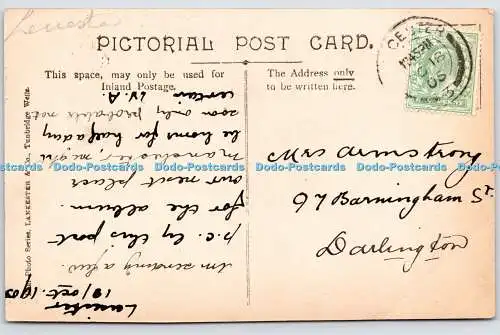 Leicester
PICTORIAL POST CARD.
This space, may only be used for
Inland Postage.
The Address only
to be written here.
Leicester
19/Oct. 1905
I'm sending a few
p.c. by this post
for the album.
our next place
Manchester, might
be home for half a day
soon only probable not
certain W.A.
Mrs Armstrong
97 Barningham St.
Darlington
Photo Series, LANKESTER & Tunbridge Wells.
Dodo-Postcards Dodo-Postcards Dodo-Postcards Dodo-Postcards Dodo-Postcards Dodo-Postcards